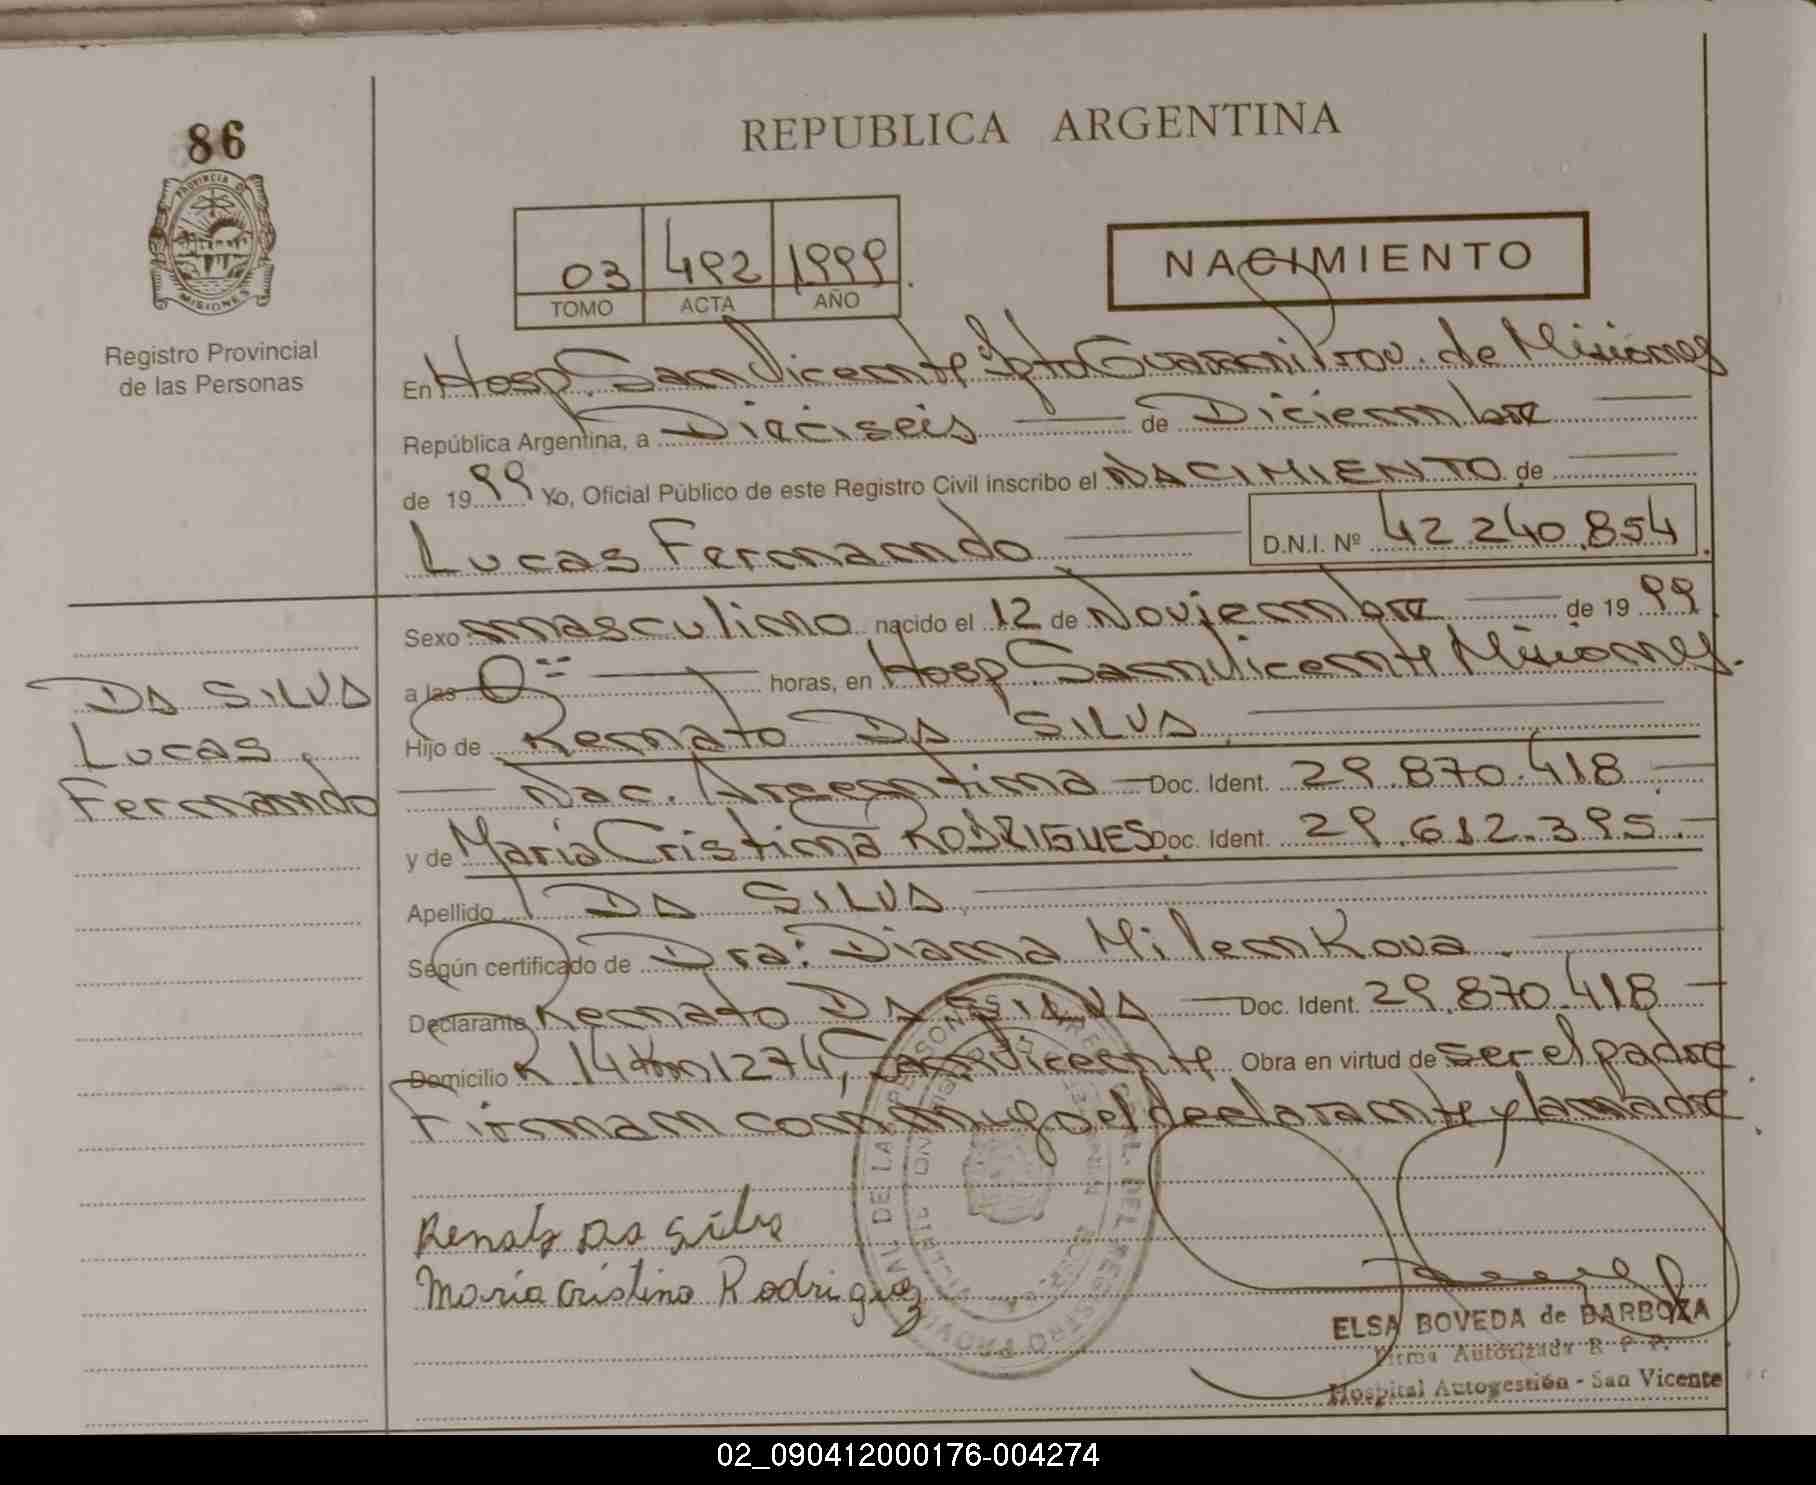 86
PROVINCIA DE
MISIONES
Registro Provincial
de las Personas
REPUBLICA ARGENTINA
03 492 1999
TOMO ACTA AÑO
NACIMIENTO
En Hosp. San Vicente Dpto Guarani Prov. de Misiones
República Argentina, a Dieciseis de Diciembre
de 1999 Yo, Oficial Público de este Registro Civil inscribo el NACIMIENTO de
Lucas Fernando D.N.I. Nº 42.240.854
Sexo masculino nacido el 12 de Noviembre de 1999
a las 0 horas, en Hosp San Vicente Misiones.
Hijo de Renato DA SILVA
Nac. Argentina Doc. Ident. 29.870.418
y de María Cristina RODRIGUES Doc. Ident. 29.612.395.-
Apellido DA SILVA
Según certificado de Dra: Diana Milenkova.
Declarante Renato DA SILVA Doc. Ident. 29.870.418
Domicilio R 14 Km 1274, San Vicente. Obra en virtud de ser el padre
Firman conmigo el declarante y la madre
DA SILVA
Lucas
Fernando
Renato Da Silva
María Cristina Rodriguez
ELSA BOVEDA de BARBOZA
Firma Autorizada R P P.
Hospital Autogestión - San Vicente
02_090412000176-004274